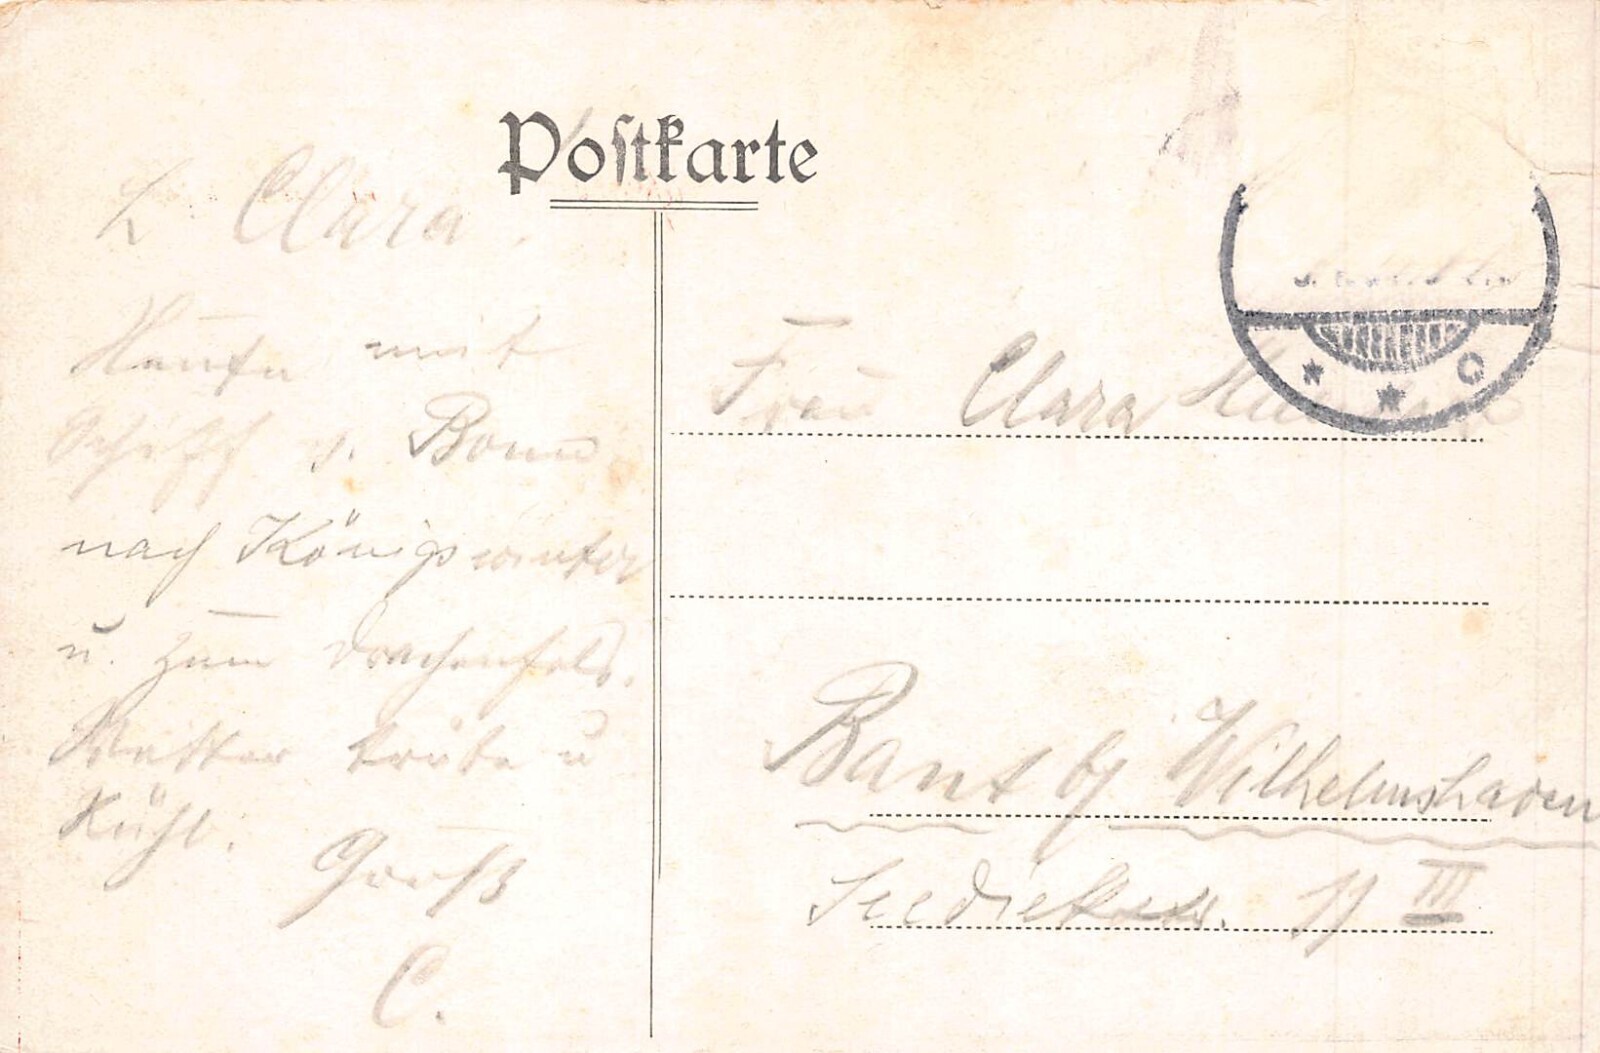 Postkarte
L. Clara.
Heute mit
Schiff v. Bonn
nach Königswinter
u. zum Drachenfels.
Wetter trübe u
kühl.
Gruß
C.
Frau Clara
Bant b/ Wilhelmshaven
Seedickstr. 11 III
* * C